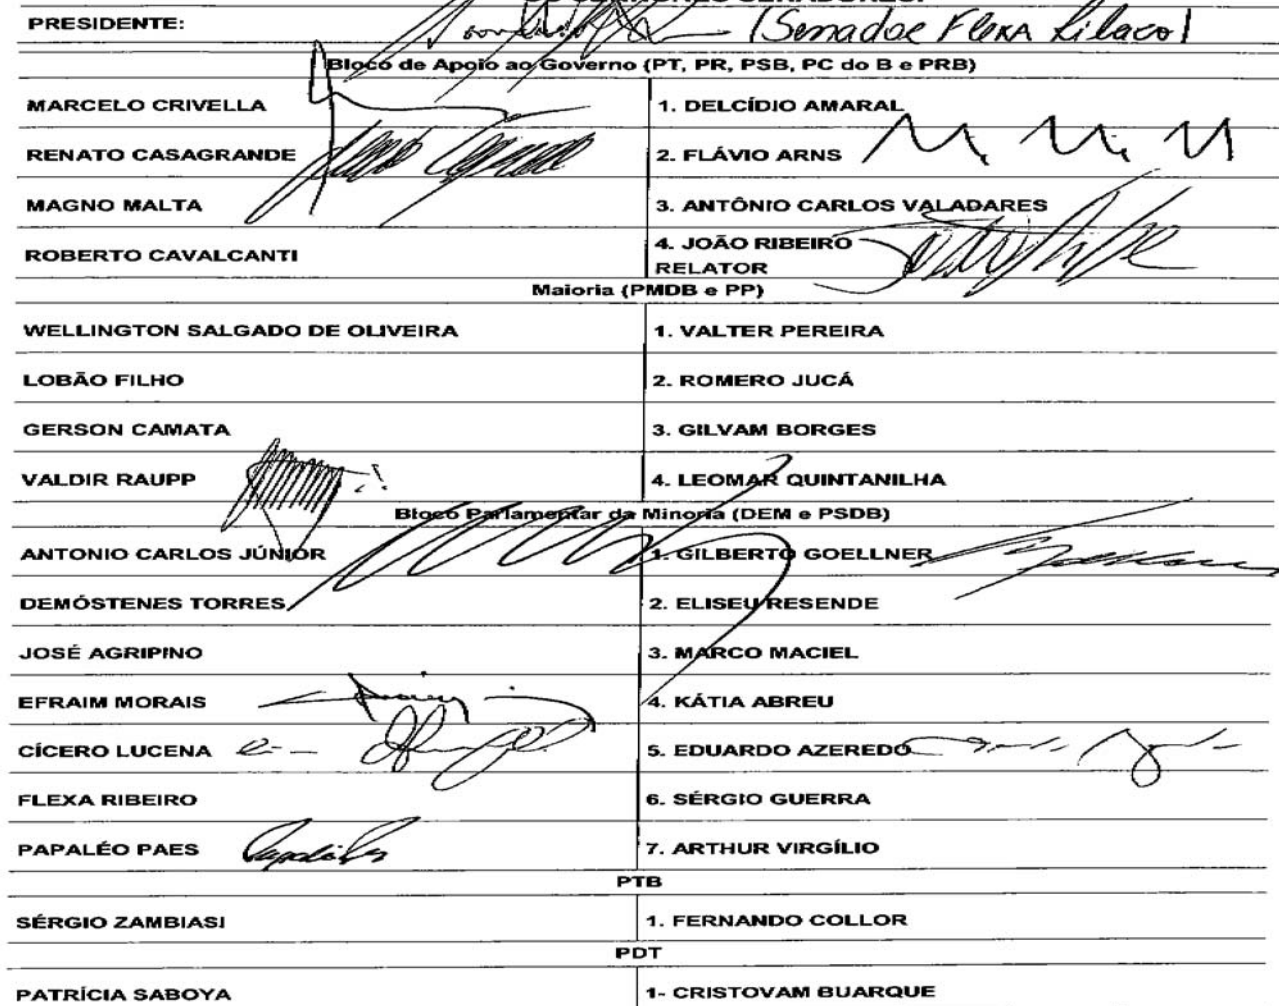 PRESIDENTE: (Senador Flexa
Bloco de Apoio ao Governo (PT, PR, PSB, PC do B e PRB)
MARCELO CRIVELLA 1. DELCÍDIO AMARAL
RENATO CASAGRANDE 2. FLÁVIO ARNS
MAGNO MALTA 3. ANTÔNIO CARLOS VALADARES
ROBERTO CAVALCANTI 4. JOÃO RIBEIRO
RELATOR
Maioria (PMDB e PP)
WELLINGTON SALGADO DE OLIVEIRA 1. VALTER PEREIRA
LOBÃO FILHO 2. ROMERO JUCÁ
GERSON CAMATA 3. GILVAM BORGES
VALDIR RAUPP 4. LEOMAR QUINTANILHA
Bloco Parlamentar da Minoria (DEM e PSDB)
ANTONIO CARLOS JÚNIOR 1. GILBERTO GOELLNER
DEMÓSTENES TORRES 2. ELISEU RESENDE
JOSÉ AGRIPINO 3. MARCO MACIEL
EFRAIM MORAIS 4. KÁTIA ABREU
CÍCERO LUCENA 5. EDUARDO AZEREDO
FLEXA RIBEIRO 6. SÉRGIO GUERRA
PAPALÉO PAES 7. ARTHUR VIRGÍLIO
PTB
SÉRGIO ZAMBIASI 1. FERNANDO COLLOR
PDT
PATRÍCIA SABOYA 1- CRISTOVAM BUARQUE